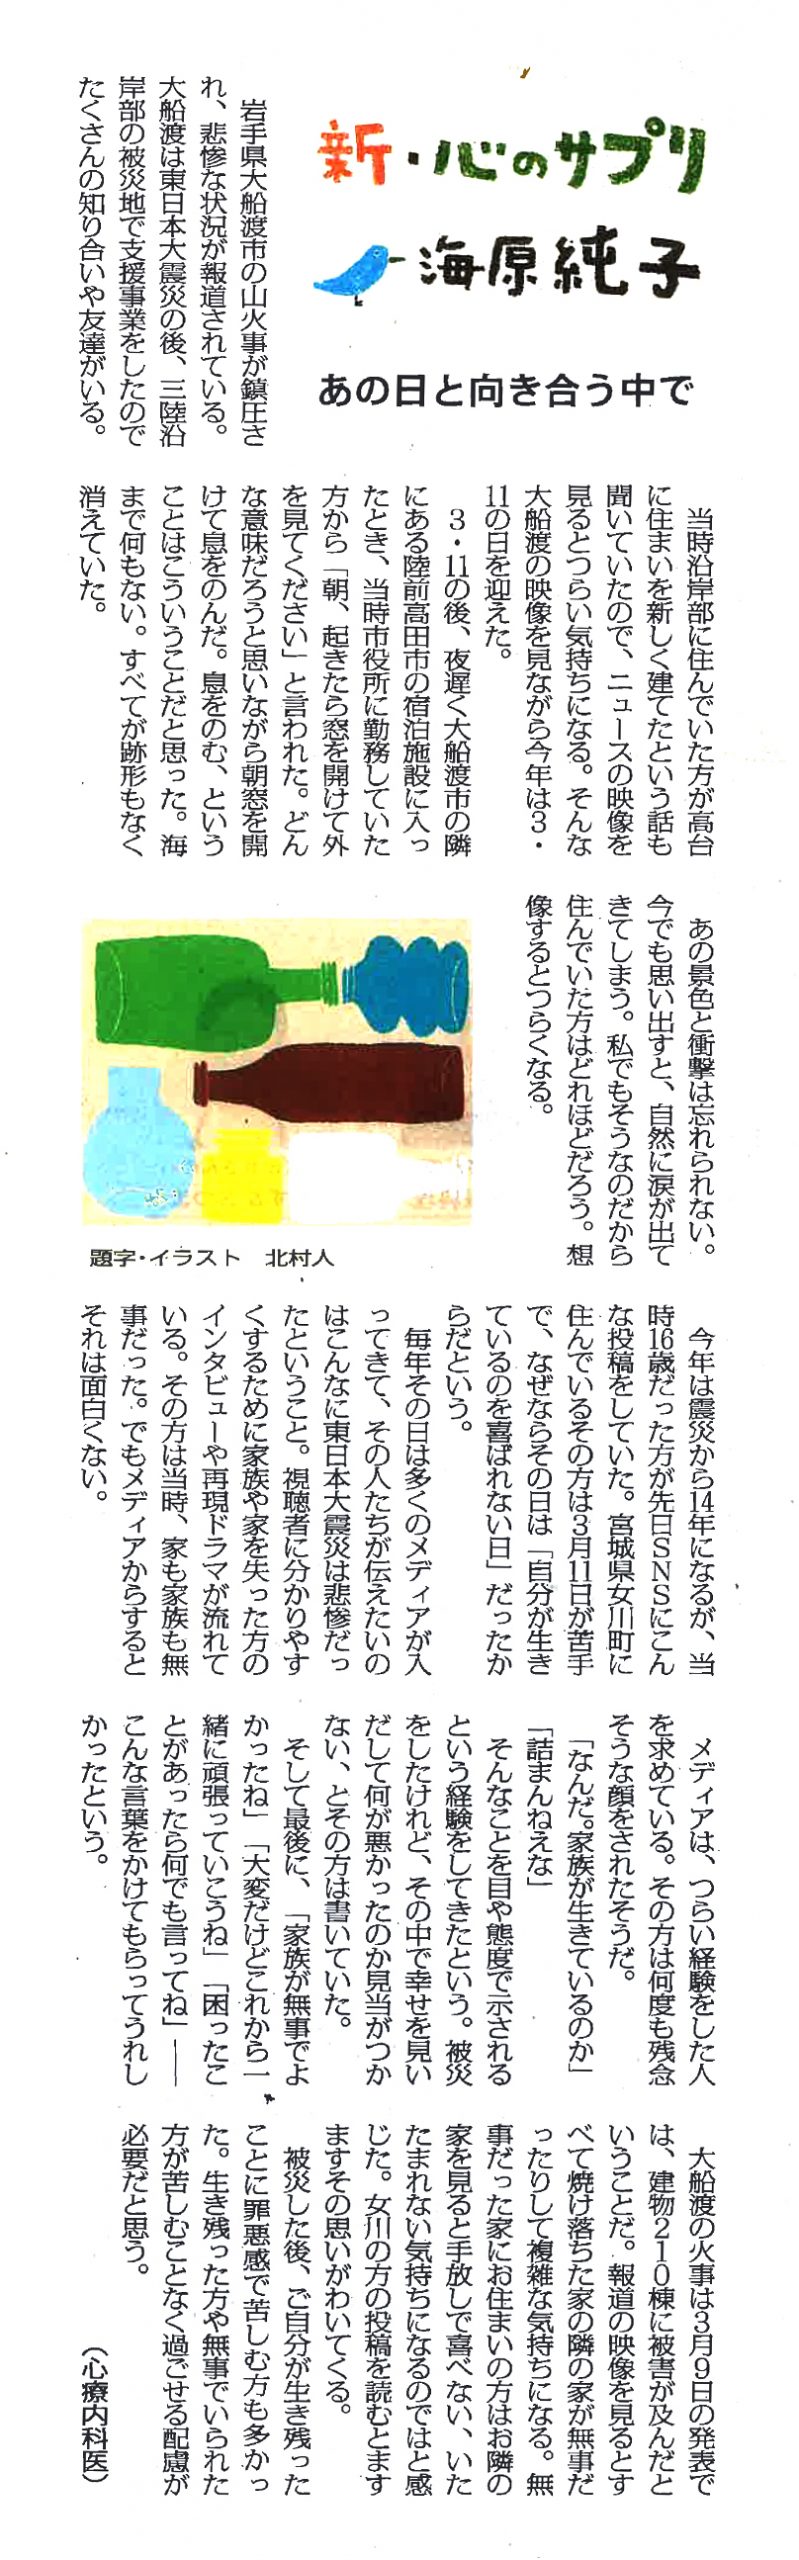 新・心のサプリ
海原純子
あの日と向き合う中で
岩手県大船渡市の山火事が鎮圧さ
れ、悲惨な状況が報道されている。
大船渡は東日本大震災の後、三陸沿
岸部の被災地で支援事業をしたので
たくさんの知り合いや友達がいる。
当時沿岸部に住んでいた方が高台
に住まいを新しく建てたという話も
聞いていたので、ニュースの映像を
見るとつらい気持ちになる。そんな
大船渡の映像を見ながら今年は3・
11の日を迎えた。
3・11の後、夜遅く大船渡市の隣
にある陸前高田市の宿泊施設に入っ
たとき、当時市役所に勤務していた
方から「朝、起きたら窓を開けて外
を見てください」と言われた。どん
な意味だろうと思いながら朝窓を開
けて息をのんだ。息をのむ、という
ことはこういうことだと思った。海
まで何もない。すべてが跡形もなく
消えていた。
あの景色と衝撃は忘れられない。
今でも思い出すと、自然に涙が出て
きてしまう。私でもそうなのだから
住んでいた方はどれほどだろう。想
像するとつらくなる。
題字・イラスト　北村人
今年は震災から14年になるが、当
時16歳だった方が先日SNSにこん
な投稿をしていた。宮城県女川町に
住んでいるその方は3月11日が苦手
で、なぜならその日は「自分が生き
ているのを喜ばれない日」だったか
らだという。
毎年その日は多くのメディアが入
ってきて、その人たちが伝えたいの
はこんなに東日本大震災は悲惨だっ
たということ。視聴者に分かりやす
くするために家族や家を失った方の
インタビューや再現ドラマが流れて
いる。その方は当時、家も家族も無
事だった。でもメディアからすると
それは面白くない。
メディアは、つらい経験をした人
を求めている。その方は何度も残念
そうな顔をされたそうだ。
「なんだ。家族が生きているのか」
「詰まんねえな」
そんなことを目や態度で示される
という経験をしてきたという。被災
をしたけれど、その中で幸せを見い
だして何が悪かったのか見当がつか
ない、とその方は書いていた。
そして最後に、「家族が無事でよ
かったね」「大変だけどこれから一
緒に頑張っていこうね」「困ったこ
とがあったら何でも言ってね」――
こんな言葉をかけてもらってうれし
かったという。
大船渡の火事は3月9日の発表で
は、建物210棟に被害が及んだと
いうことだ。報道の映像を見るとす
べて焼け落ちた家の隣の家が無事だ
ったりして複雑な気持ちになる。無
事だった家にお住まいの方はお隣の
家を見ると手放しで喜べない、いた
たまれない気持ちになるのではと感
じた。女川の方の投稿を読むとます
ますその思いがわいてくる。
被災した後、ご自分が生き残った
ことに罪悪感で苦しむ方も多かっ
た。生き残った方や無事でいられた
方が苦しむことなく過ごせる配慮が
必要だと思う。
（心療内科医）